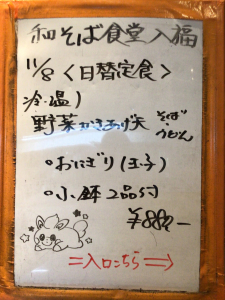 和そば食堂入福
11/8〈日替定食〉
冷・温)
野菜かきあげ天 そば・うどん
○おにぎり(玉子)
○小鉢2品付
¥880-
⇒入口こちら⇒